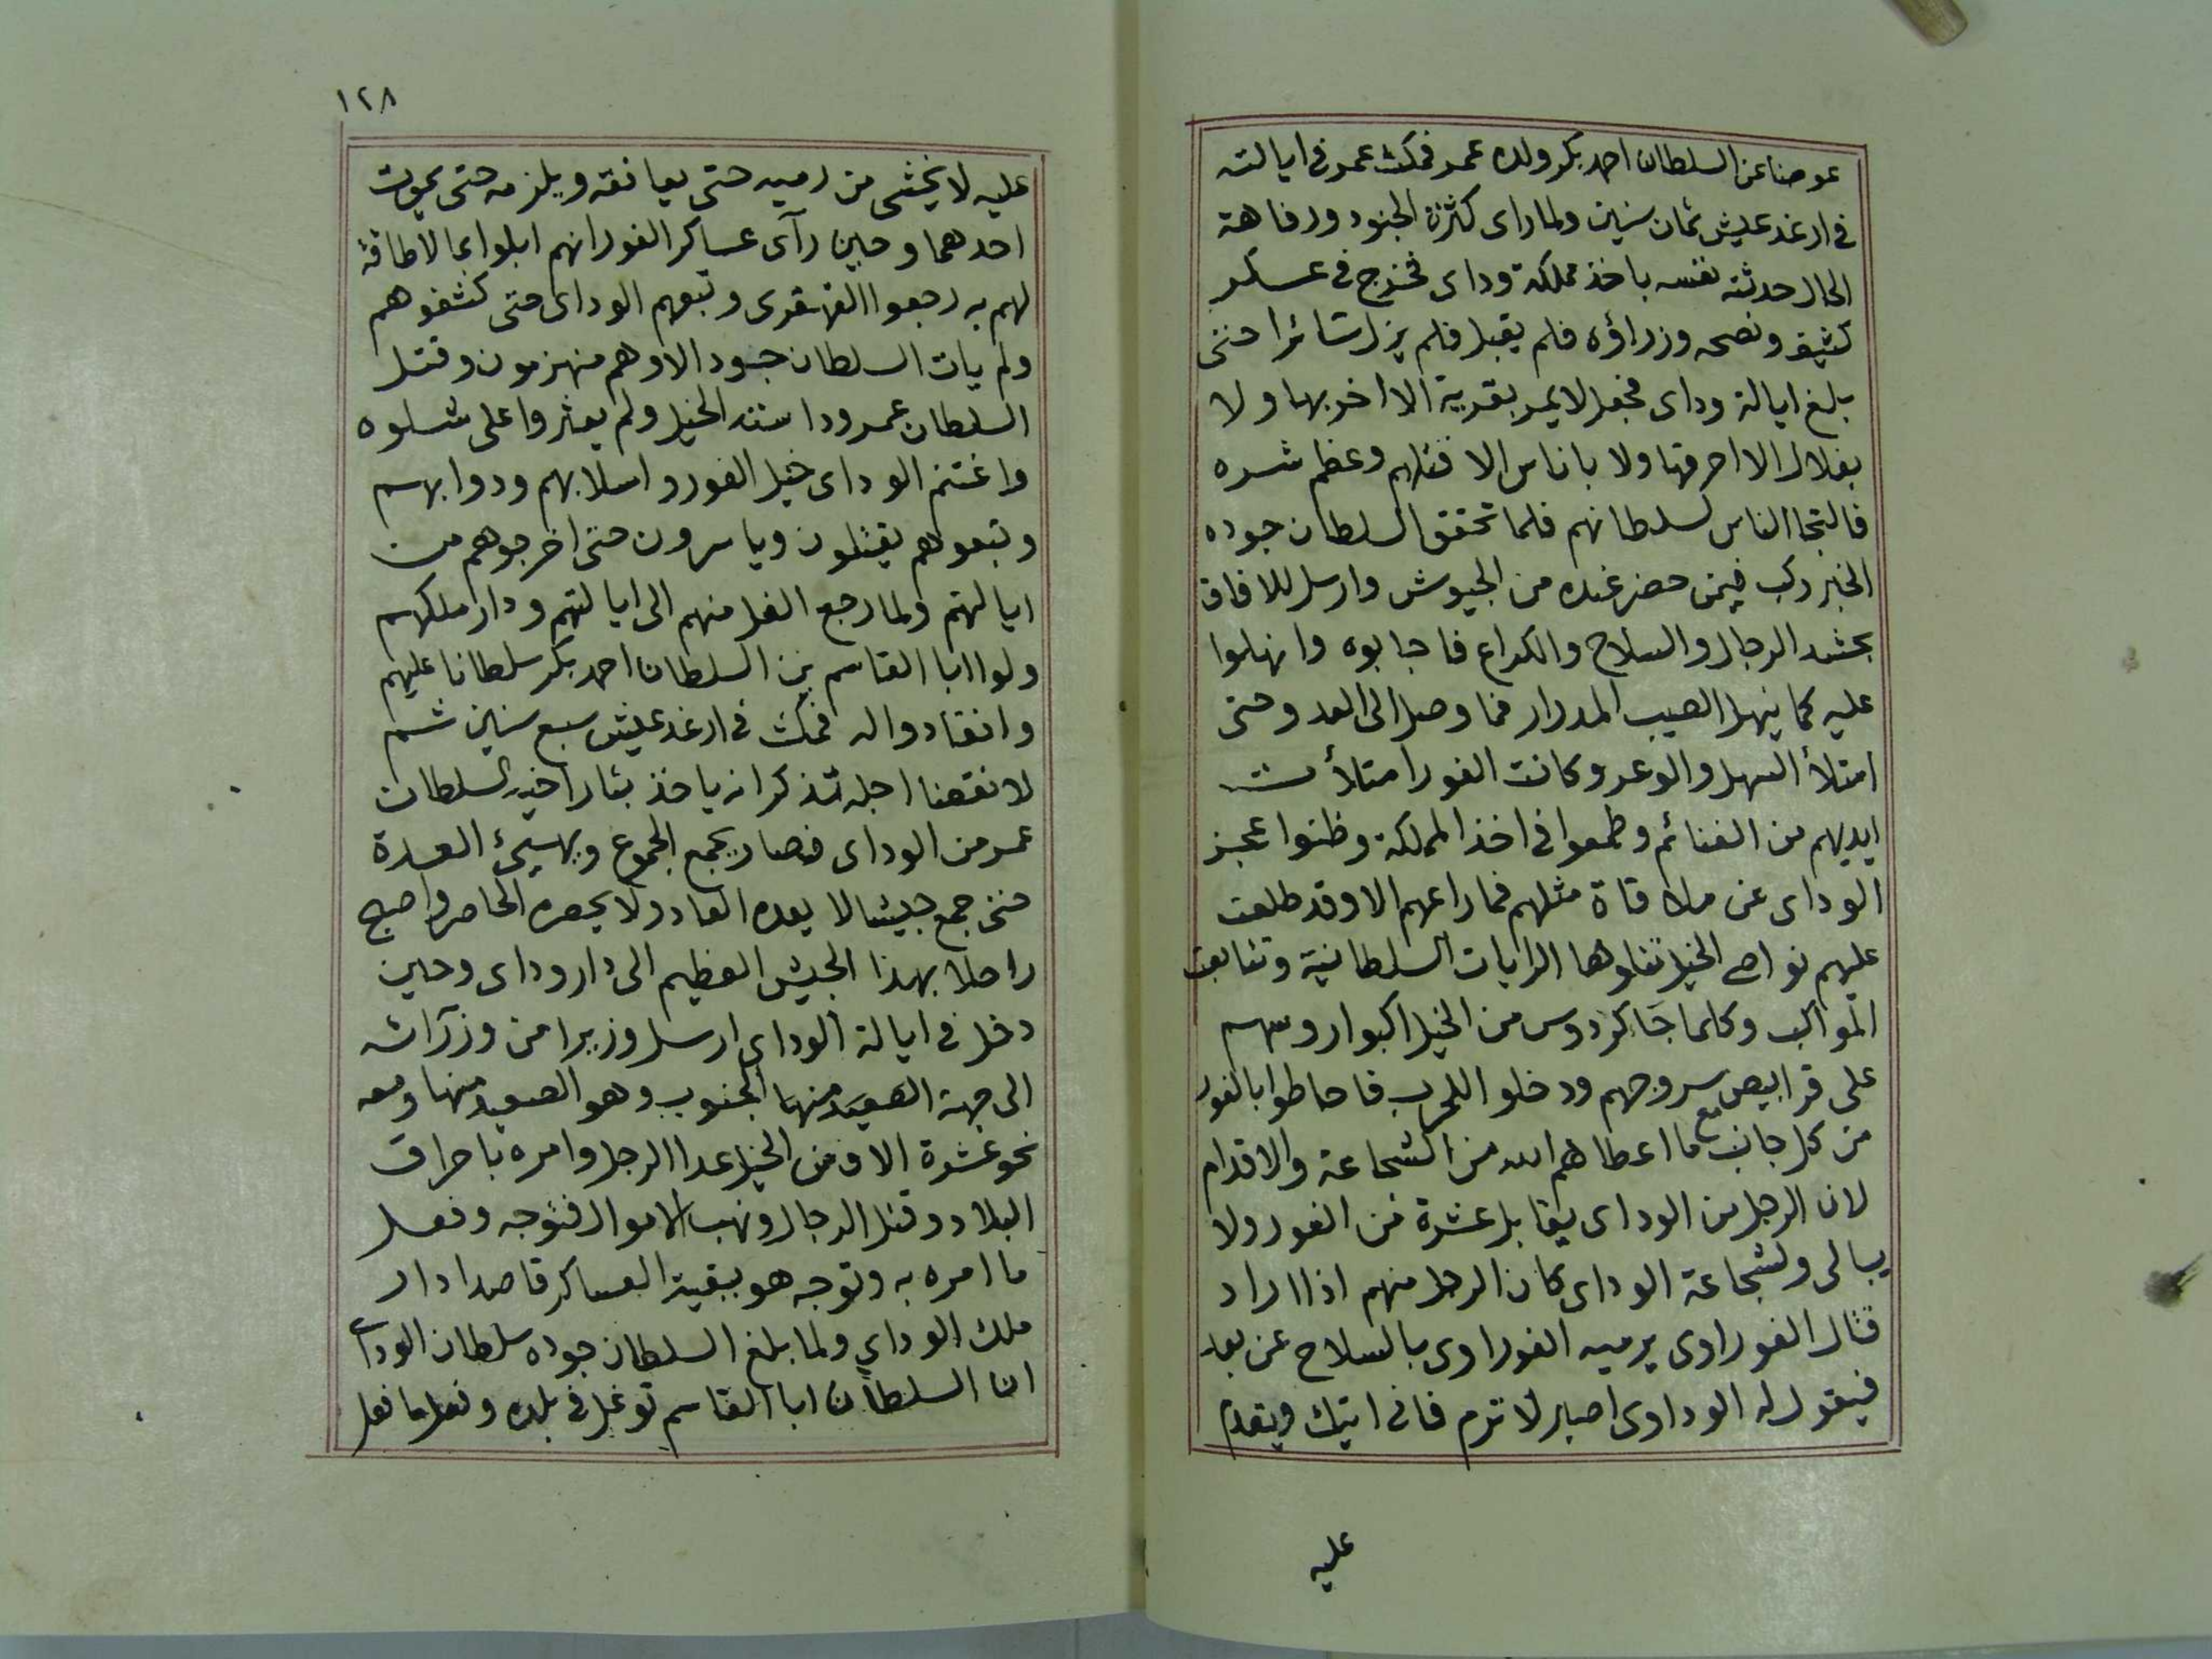 عوضا عن السلطان احمد بكر ولده عمر فمكث عمر فى ايالته
فى ارغد عيش ثمان سنين ولما راى كثرة الجنود ورفاهة
الحال حدثته نفسه باخذ مملكة وداى فخرج فى عسكر
كثيف ونصحه وزراؤه فلم يقبل فلم يزل سائرا حتى
بلغ ايالة وداى فجعل لا يمر بقرية الا اخربها ولا
بغلال الا احرقها ولا باناس الا قتلهم وعظم شره
فالتجا الناس لسلطانهم فلما تحقق السلطان جوده
الخبر ركب فيمن حضر عنده من الجيوش وارسل للافاق
بحشد الرجال والسلاح والكراع فاجابوه وانهلوا
عليه كما ينهل الصيب المدرار فما وصل الى العدو حتى
امتلأ السهل والوعر وكانت الفور امتلأت
ايديهم من الغنائم وطمعوا فى اخذ المملكة وظنوا عجز
الوداى عن ملاقاة مثلهم فما راعهم الا وقد طلعت
عليهم نواصى الخيل تتلوها الرايات السلطانية وتتابعت
المواكب وكلما جا كردوس من الخيل اكبوا روسهم
على قرابيص سروجهم ودخلوا للحرب فاحاطوا بالفور
من كل جانب مع ما اعطاهم الله من الشجاعة والاقدام
لان الرجل من الوداى يقابل عشرة من الفور ولا
يبالى ولشجاعة الوداى كان الرجل منهم اذا اراد
قتال الفوراوى يرميه الفوراوى بالسلاح عن بعد
فيقول له الوداوى اصبر لا ترم فانى اتيك ويقدم
عليه
١٢٨
عليه لا يخشى من رميه حتى يعانقه ويلزمه حتى يموت
احدهما وحين رآى عساكر الفور انهم ابلوا بما لا طاقة
لهم به رجعوا القهقرى وتبعهم الوداى حتى كشفوهم
ولم يات السلطان جوده الا وهم منهزمون وقتل
السلطان عمر وداسته الخيل ولم يعثروا على شلوه
واغتنم الوداى خيل الفور واسلابهم ودوابهم
وتبعوهم يقتلون وياسرون حتى اخرجوهم من
ايالتهم ولما رجع الفل منهم الى ايالتهم ودار ملكهم
ولوا ابا القاسم بن السلطان احمد بكر سلطانا عليهم
وانقادوا له فمكث فى ارغد عيش سبع سنين ثم
لانقضا اجله تذكر انه ياخذ بثار اخيه السلطان
عمر من الوداى فصار يجمع الجموع ويهيئ العدة
حتى جمع جيشا لا يعده العاد ولا يحصره الحاصر واصبح
راحلا بهذا الجيش العظيم الى دار وداى وحين
دخل فى ايالة الوداى ارسل وزيرا من وزرائه
الى جهة الصعيد منها الجنوب وهو الصعيد منها ومعه
نحو عشرة الاف من الخيل عدا الرجل وامره باحراق
البلاد وقتل الرجال ونهب الاموال فتوجه وفعل
ما امره به وتوجه هو ببقية العساكر قاصدا دار
ملك الوداى ولما بلغ السلطان جوده سلطان الوداى
ان السلطان ابا القاسم توغل فى بلده وفعل ما فعل